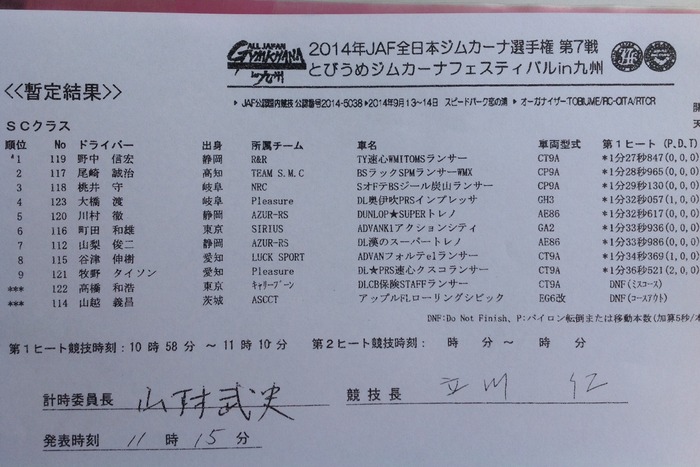 ALL JAPAN
GYMKHANA
in九州
2014年JAF全日本ジムカーナ選手権 第7戦
とびうめジムカーナフェスティバルin九州
<<暫定結果>>
▶JAF公認国内競技 公認番号2014-5038 ▶2014年9月13~14日 スピードパーク恋の浦 ▶オーガナイザーTOBIUME/RC-OITA/RTCR
SCクラス
順位 No ドライバー 出身 所属チーム 車名 車両型式 第1ヒート(P,D,T)
*1 119 野中 信宏 静岡 R&R TY速心WMITOMSランサー CT9A *1分27秒847(0,0,0)
2 117 尾崎 誠治 高知 TEAM S.M.C BSラックSPMランサーWMX CP9A *1分28秒965(0,0,0)
3 118 桃井 守 岐阜 NRC SオFテBSジール炭山ランサー CP9A *1分29秒130(0,0,0)
4 123 大橋 渡 岐阜 Pleasure DL奥伊吹PRSインプレッサ GH3 *1分32秒057(1,0,0)
5 120 川村 徹 静岡 AZUR-RS DUNLOP★SUPERトレノ AE86 *1分32秒617(0,0,0)
6 116 町田 和雄 東京 SIRIUS ADVANK1アクションシティ GA2 *1分33秒936(0,0,0)
7 112 山梨 俊二 静岡 AZUR-RS DL漢のスーパートレノ AE86 *1分33秒986(0,0,0)
8 115 谷津 伸樹 愛知 LUCK SPORT ADVANフォルテelランサー CT9A *1分34秒369(1,0,0)
9 121 牧野 タイソン 愛知 Pleasure DL★PRS速心クスコランサー CT9A *1分36秒521(2,0,0)
*** 122 高橋 和浩 東京 キャリープーン DLCB保険STAFFランサー CT9A DNF(ミスコース)
*** 114 山越 義昌 茨城 ASCCT アップルFLローリングシビック EG6改 DNF(コースアウト)
DNF:Do Not Finish, P:パイロン転倒または移動本数(加算5秒/本
第1ヒート競技時刻:10時58分 ~11時10分 第2ヒート競技時刻: 時 分~ 時 分
計時委員長 山村武史 競技長 立川 仁
発表時刻 11 時 15 分